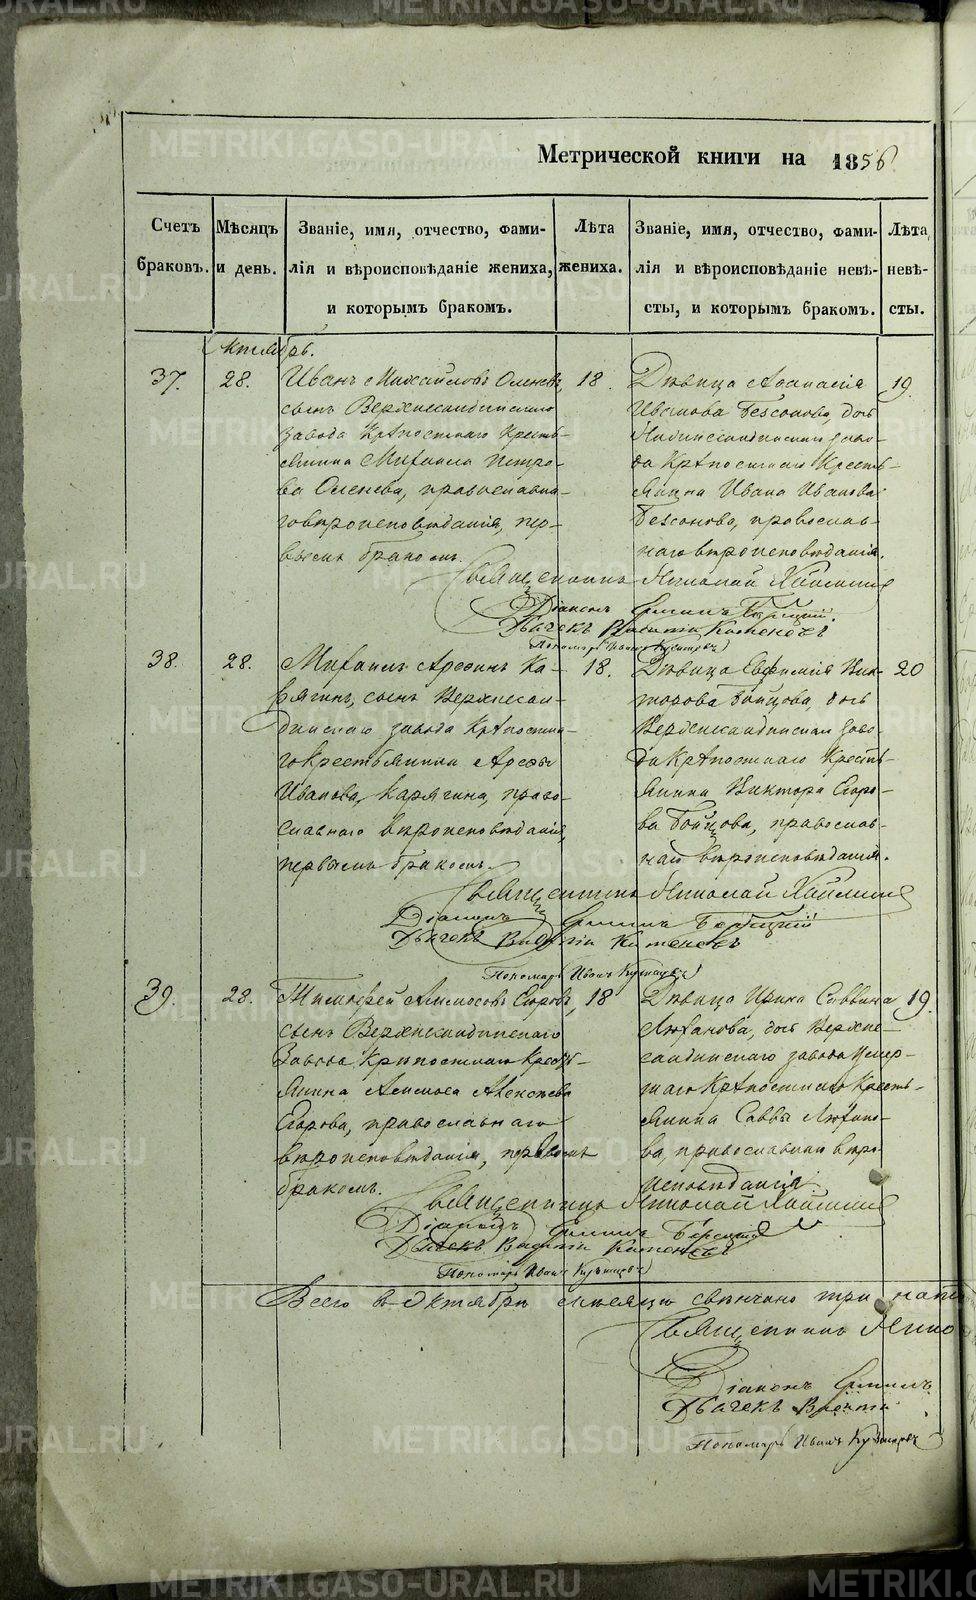 METRIKI.GASO-URAL.RU
Метрической книги на 1856
Счетъ браковъ.
Мѣсяцъ и день.
Званіе, имя, отчество, фами-
лія и вѣроисповѣданіе жениха,
и которымъ бракомъ.
Лѣта жениха.
Званіе, имя, отчество, фами-
лія и вѣроисповѣданіе невѣ-
сты, и которымъ бракомъ.
Лѣта невѣ-
сты.
Октябрь.
37.
28.
Иванъ Михайловъ Оленевъ,
сынъ Верхнесалдинскаго
завода Крѣпостнаго Кресть-
янина Михаила Петро-
ва Оленева, православна-
го вѣроисповѣданія, пер-
вымъ бракомъ.
18.
Дѣвица Афанасія
Иванова Безсонова, дочь
завода Крѣпостнаго Кресть-
янина Ивана Иванова
Безсонова, православ-
наго вѣроисповѣданія.
19.
Священникъ Николай
Діаконъ
Дьячекъ Василій
Пономарь Иванъ Кузнецовъ
38.
28.
Михаилъ Арефинъ Ка-
рягинъ, сынъ Верхнесал-
динскаго завода Крѣпостна-
го Крестьянина Арефы
Иванова Карягина, право-
славнаго вѣроисповѣданія,
первымъ бракомъ.
18.
Дѣвица Евфимія Вик-
торова Бойцова, дочь
Верхнесалдинскаго заво-
да Крѣпостнаго Кресть-
янина Виктора Егоро-
ва Бойцова, православ-
наго вѣроисповѣданія.
20
Священникъ Николай
Діаконъ
Дьячекъ Василій
Пономарь Иванъ Кузнецовъ
39.
28.
Тимофей Егоровъ,
сынъ Верхнесалдинскаго
Завода Крѣпостнаго Кресть-
янина Алексѣева
Егорова, православнаго
вѣроисповѣданія, первымъ
бракомъ.
18
Дѣвица Ирина Саввина
дочь Верхне-
салдинскаго завода умер-
шаго Крѣпостнаго Кресть-
янина Саввы
ва, православнаго вѣро-
исповѣданія.
19.
Священникъ Николай
Діаконъ
Дьячекъ Василій
Пономарь Иванъ Кузнецовъ
Всего въ Октябрѣ мѣсяцѣ свѣнчано три
Священникъ Нико
Діаконъ
Дьячекъ
Пономарь Иванъ Кузнецовъ